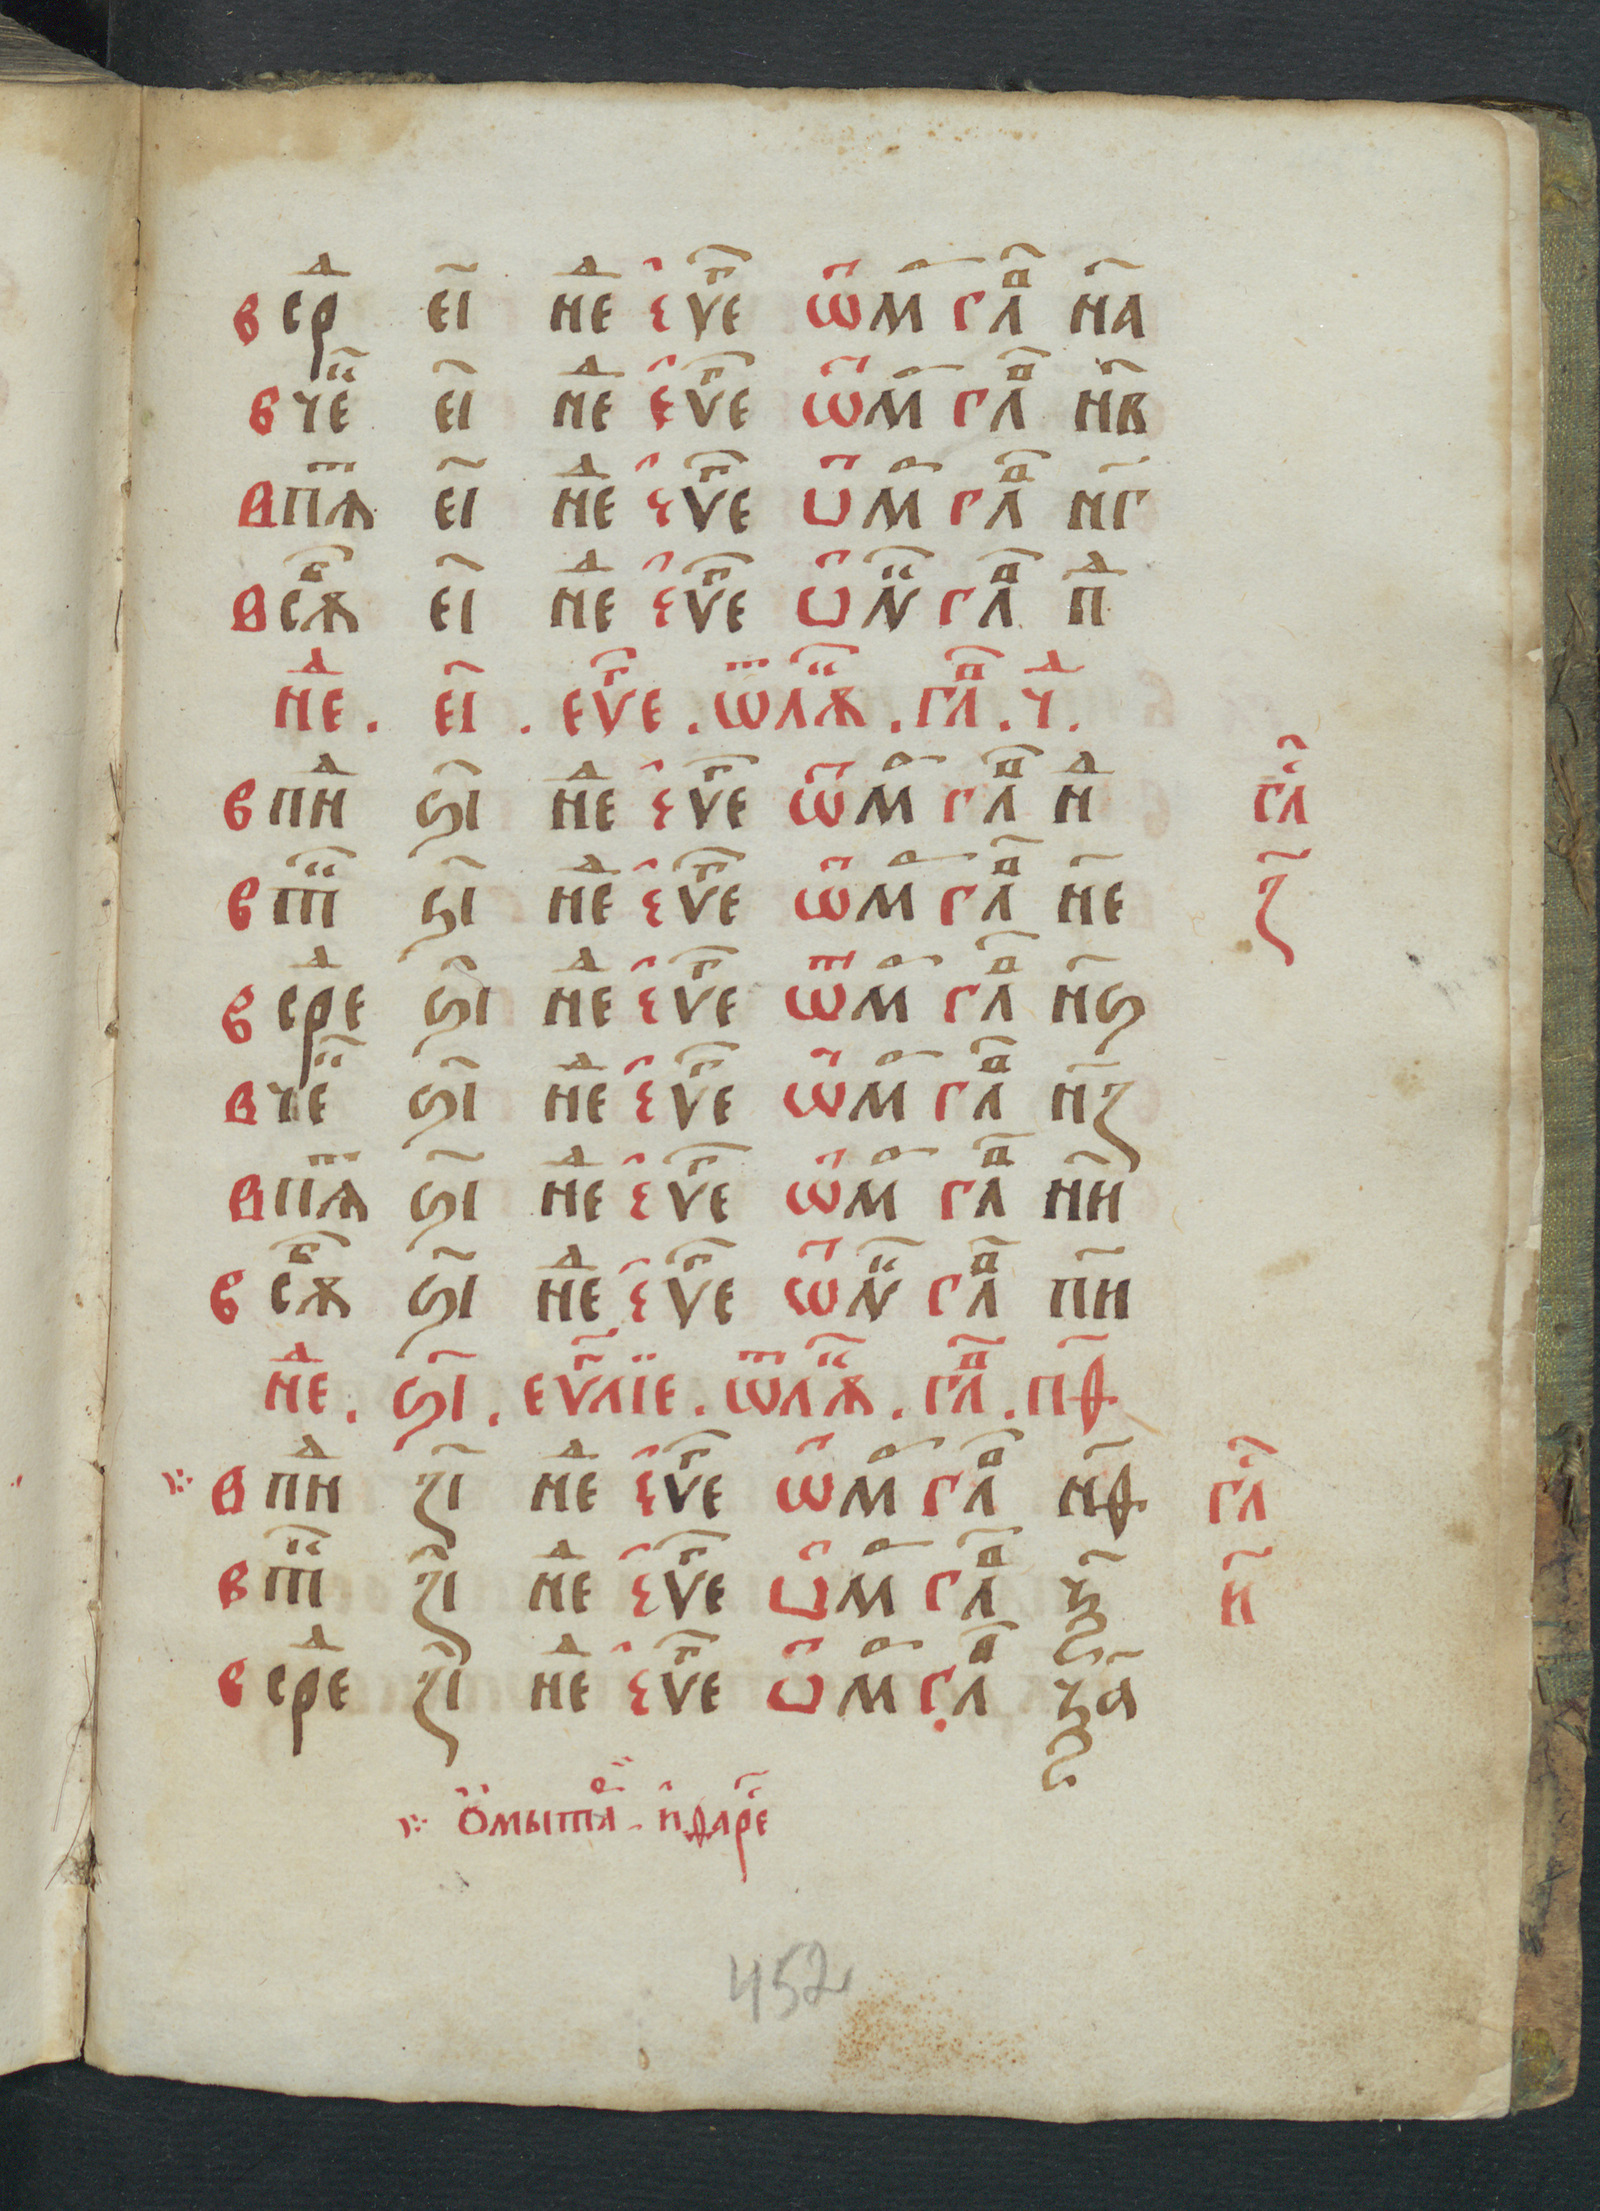 в срⷣ е҃і неⷣ є҆ ѵⷢ҇е ѿ м҃ гл҃аⷡ на҃
в чеⷦ҇ е҃і неⷣ є҆ ѵⷢ҇е ѿ м҃ гл҃аⷡ нв҃
в пѧⷮ е҃і неⷣ є҆ ѵⷢ҇е ѿ м҃ гл҃ нг҃
в сѫⷠ҇ е҃і неⷣ є҆ ѵⷢ҇е ѿ л҃ гл҃ пⷣ
неⷣ . е҃і . еѵⷢ҇е . ѿ лѫⷦ҇ . гл҃ . чⷣ .
в пнⷣ ѕ҃і неⷣ є҆ ѵⷢ҇е ѿ м҃ гл҃ нⷣ гла҃с
в вт҃ ѕ҃і неⷣ є҆ ѵⷢ҇е ѿ м҃ гл҃ не҃ з҃
в среⷣ ѕ҃і неⷣ є҆ ѵⷢ҇е ѿ м҃ гл҃ нѕ҃
в чеⷦ҇ ѕ҃і неⷣ є҆ ѵⷢ҇е ѿ м҃ гл҃ нз҃
в пѧⷮ ѕ҃і неⷣ є҆ ѵⷢ҇е ѿ м҃ гл҃ нн҃
в сѫⷠ҇ ѕ҃і неⷣ є҆ ѵⷢ҇е ѿ л҃ гл҃ пн҃
неⷣ . ѕ҃і . еѵⷢ҇лїе . ѿ лѫⷦ҇ . гл҃ . пѳ҃
в пнⷣ з҃і неⷣ є҆ ѵⷢ҇е ѿ м҃ гл҃ нѳ҃ гл҃
в вт҃ з҃і неⷣ є҆ ѵⷢ҇е ѿ м҃ гл҃ ѯ҃ и҃
в среⷣ з҃і неⷣ є҆ ѵⷢ҇е ѿ м҃ гл҃ ѯа҃
ѻ҆ мытаⷬ҇ . и҆ фарⷭ҇е
452